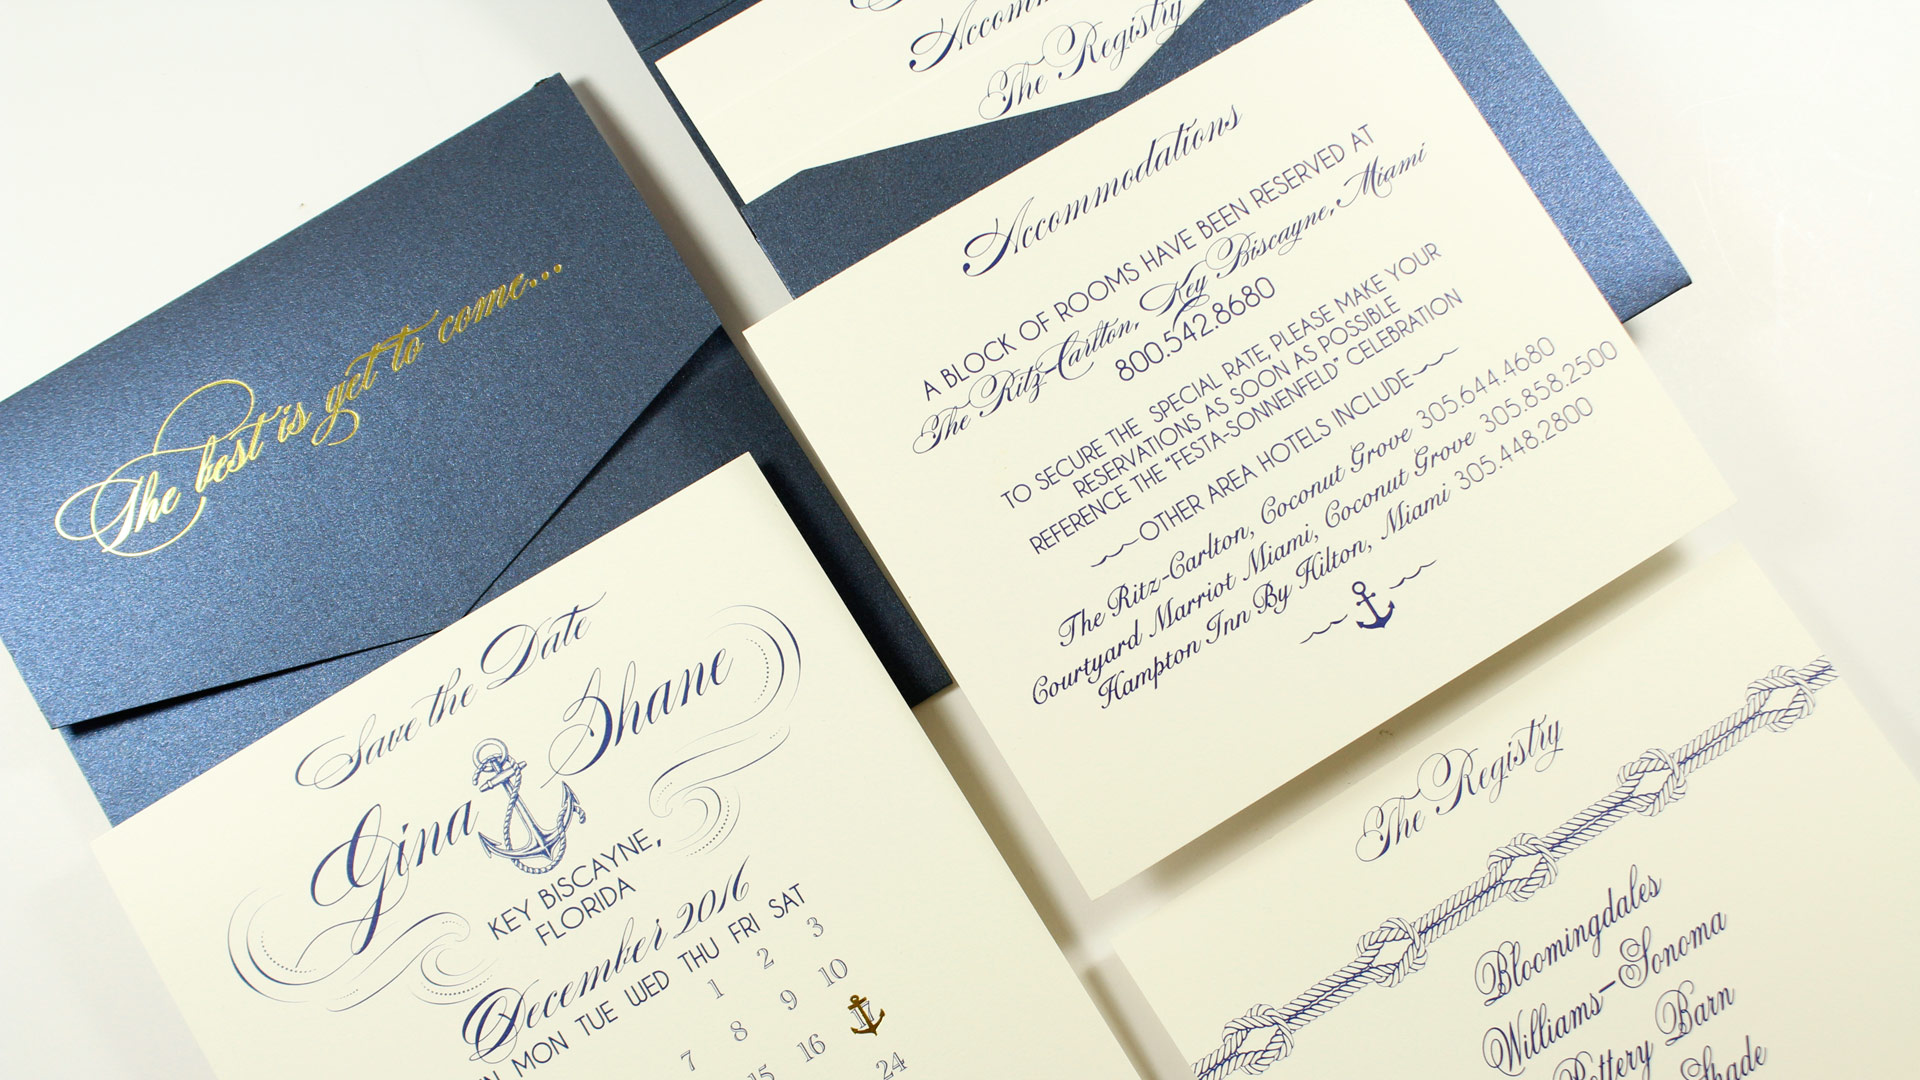 The best is yet to come...
Save the Date
Gina Shane
KEY BISCAYNE,
FLORIDA
December 2016
MON TUE WED THU FRI SAT
1 2 3
7 8 9 10
15 16 17
24
The Registry
Accommodations
A BLOCK OF ROOMS HAVE BEEN RESERVED AT
The Ritz-Carlton, Key Biscayne, Miami
800.542.8680
TO SECURE THE SPECIAL RATE, PLEASE MAKE YOUR
RESERVATIONS AS SOON AS POSSIBLE
REFERENCE THE "FESTA-SONNENFELD" CELEBRATION
OTHER AREA HOTELS INCLUDE
The Ritz-Carlton, Coconut Grove 305.644.4680
Courtyard Marriot Miami, Coconut Grove 305.858.2500
Hampton Inn By Hilton, Miami 305.448.2800
The Registry
Bloomingdales
Williams-Sonoma
Pottery Barn